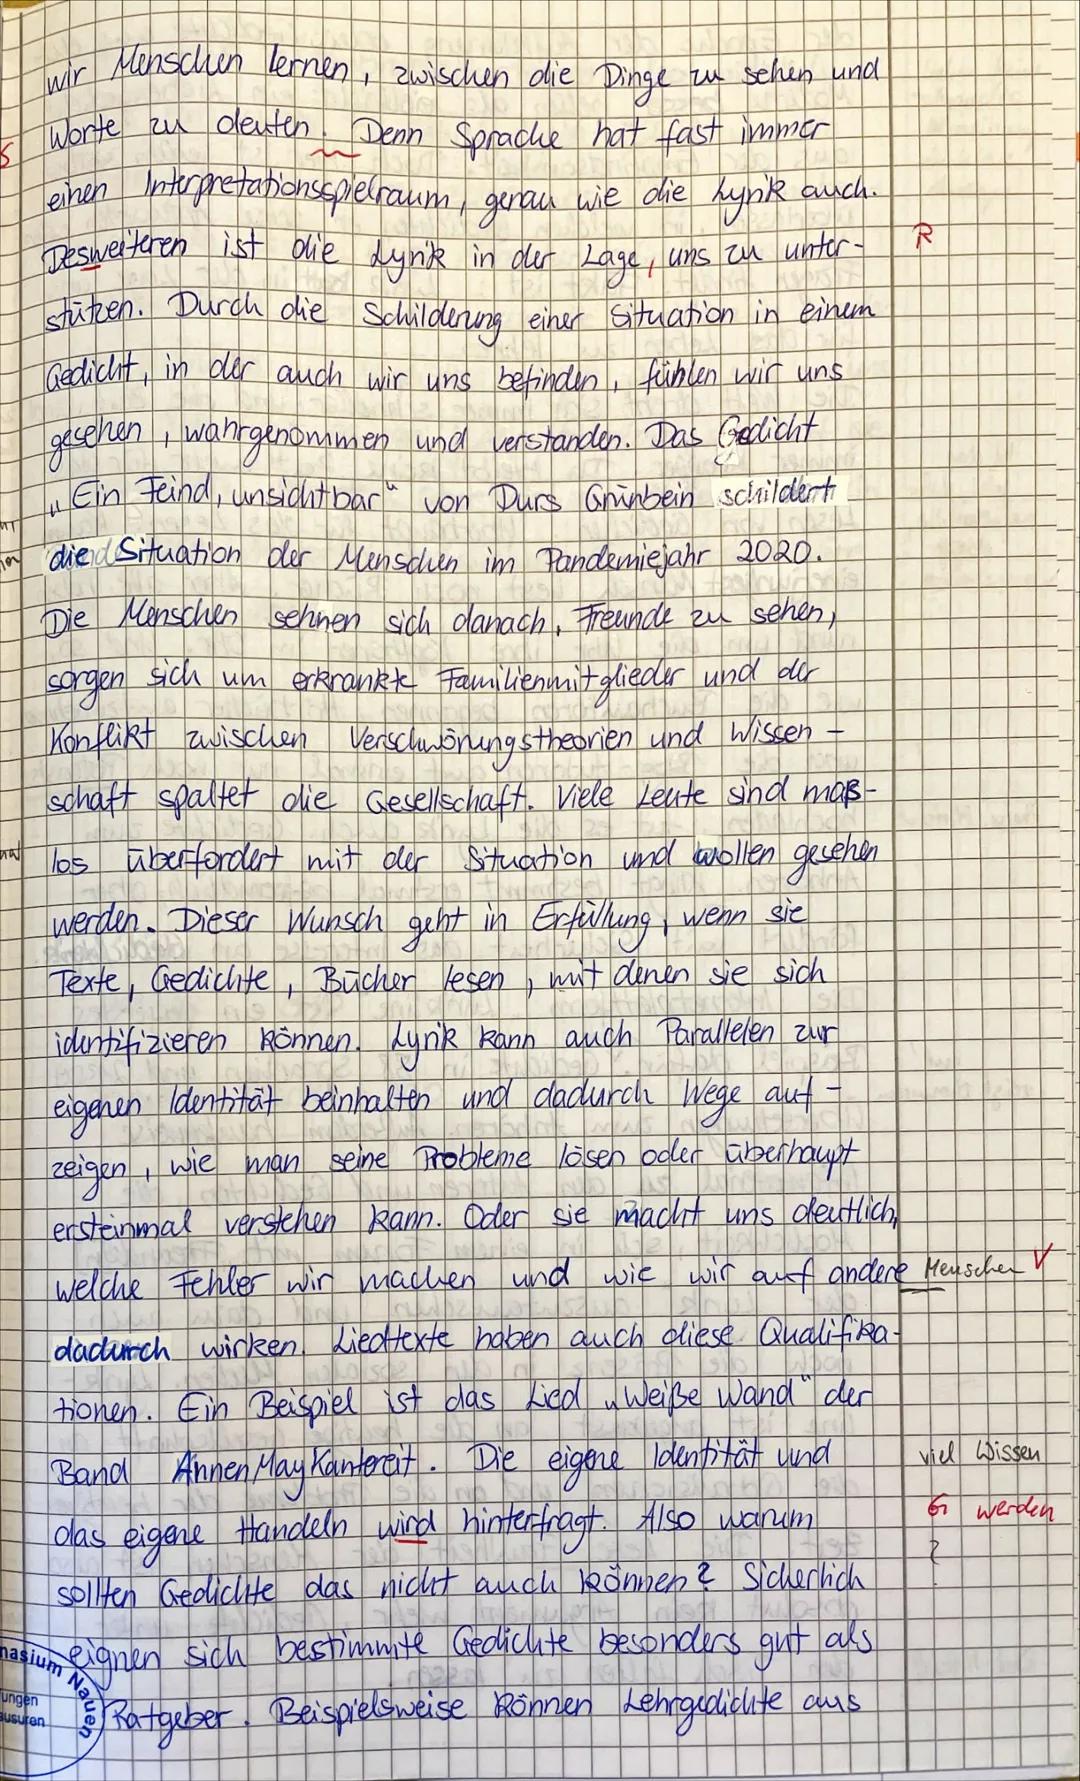 wir Menschen lernen, zwischen die Dinge zu sehen und
Worte zu deuten. Denn Sprache hat fast immer
S
einen Interpretationsspielraum, genau wie die Lyrik auch.
Desweiteren ist die Lyrik in der Lage, uns zu unter- R
stützen. Durch die Schilderung einer Situation in einem
Gedicht, in der auch wir uns befinden, fühlen wir uns
gesehen, wahrgenommen und verstanden. Das Gedicht
„Ein Feind, unsichtbar" von Durs Grünbein schildert
die Situation der Menschen im Pandemiejahr 2020.
Die Menschen sehnen sich danach, Freunde zu sehen,
sorgen sich um erkrankte Familienmitglieder und der
Konflikt zwischen Verschwörungstheorien und Wissen-
schaft spaltet die Gesellschaft. Viele Leute sind maß-
los überfordert mit der Situation und wollen gesehen
werden. Dieser Wunsch geht in Erfüllung, wenn sie
Texte, Gedichte, Bücher lesen, mit denen sie sich
identifizieren können. Lyrik kann auch Parallelen zur
eigenen Identität beinhalten und dadurch Wege auf-
zeigen, wie man seine Probleme lösen oder überhaupt
ersteinmal verstehen kann. Oder sie macht uns deutlich,
welche Fehler wir machen und wie wir auf andere Menschen V
dadurch wirken. Liedtexte haben auch diese Qualifika-
tionen. Ein Beispiel ist das Lied „Weiße Wand" der
Band AnnenMayKantereit. Die eigene Identität und viel Wissen
das eigene Handeln wird hinterfragt. Also warum G werden
?
sollten Gedichte das nicht auch können? Sicherlich
eignen sich bestimmte Gedichte besonders gut als
Ratgeber. Beispielsweise können Lehrgedichte aus
nasium Nauen
ungen
ausuren